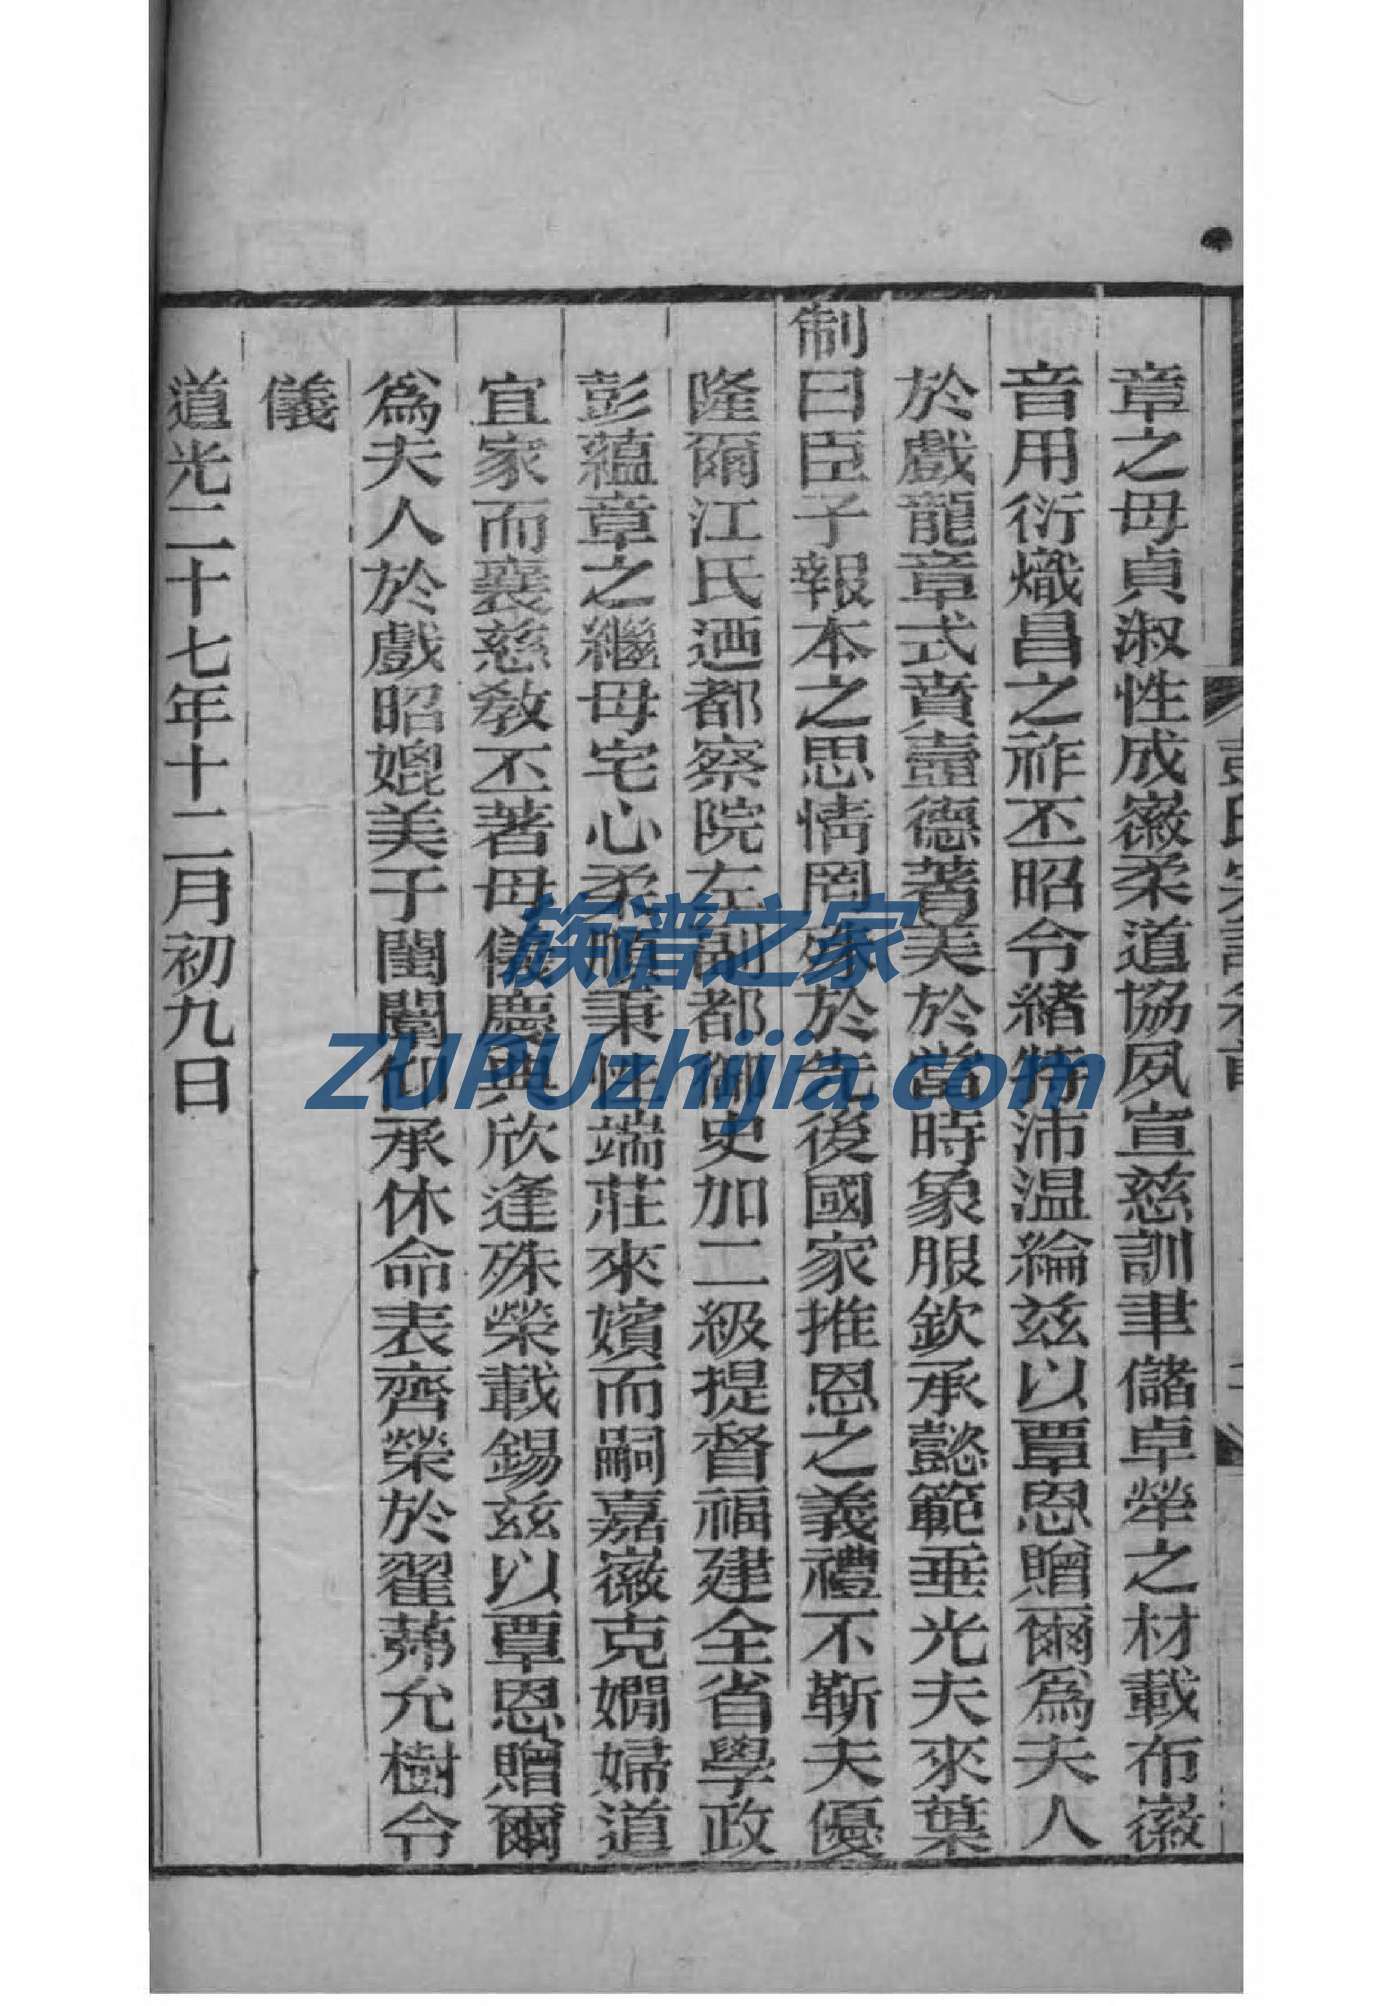 章之母貞淑性成徽柔道協夙宣慈訓聿儲卓犖之材載布徽
音用衍熾昌之祚丕昭令緒特沛温綸兹以覃恩贈爾爲夫人
於戲龍章式賁壼德著美於當時象服欽承懿範垂光夫來葉
制曰臣子報本之思情罔殊於先後國家推恩之義禮不靳夫優
隆爾江氏迺都察院左副都御史加二級提督福建全省學政
彭蘊章之繼母宅心柔順秉性端莊來嬪而嗣嘉徽克嫺婦道
宜家而襄慈教丕著母儀慶典欣逢殊榮載錫兹以覃恩贈爾
爲夫人於戲昭媲美于閨闈仰承休命表齊榮於翟茀允樹令
儀
道光二十七年十二月初九日
族谱之家
ZUPUzhijia.com